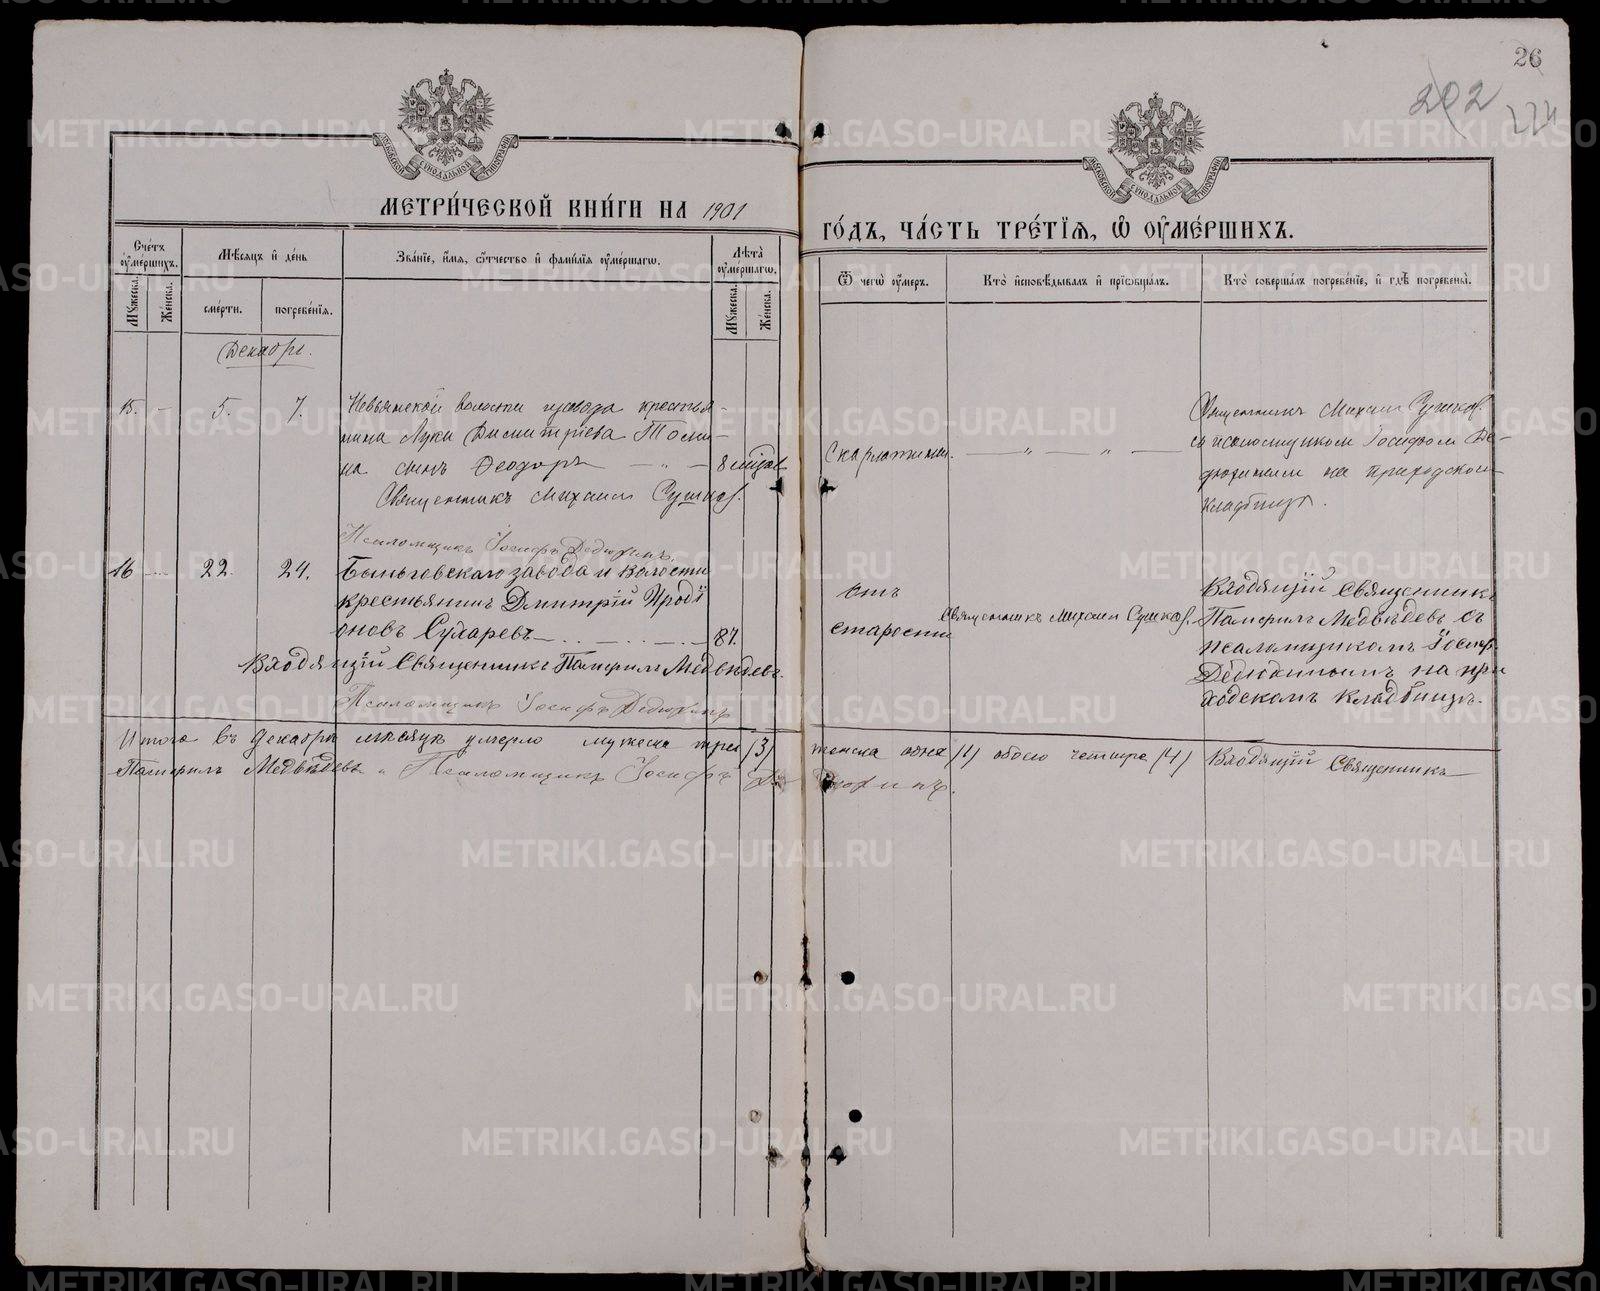 26
202
224
МОСКОВСКОЙ СѴНОДАЛЬНОЙ ТИПОГРАФІИ
МОСКОВСКОЙ СѴНОДАЛЬНОЙ ТИПОГРАФІИ
МЕТРИ́ЧЕСКОЙ КНИ́ГИ НА 1901
ГО́ДЪ, ЧА́СТЬ ТРЕ́ТЇѦ, Ѡ҆ ОУ҆МЕ́РШИХЪ.
Сче́тъ оу҆ме́ршихъ.
Мꙋ́жеска.
Же́нска.
Мѣ́сѧцъ и҆ де́нь
сме́рти.
погребе́нїѧ.
Зва́нїе, и҆́мѧ, ѻ҆́тчество и҆ фами́лїѧ оу҆ме́ршагѡ.
Лѣ́та оу҆ме́ршагѡ.
Мꙋ́жеска.
Же́нска.
Ѿ чегѡ̀ оу҆́меръ.
Кто̀ и҆сповѣ́дывалъ и҆ прїѡбща́лъ.
Кто̀ соверша́лъ погребе́нїе, и҆ гдѣ̀ погребены̀.
Декабрь.
15. - 5. 7.
Невьянской волости и завода крестья-
нина Луки Димитріева Томи-
на сынъ Ѳеодоръ — „ — 8 мѣсяц.
Священникъ Михаилъ Сушков.
Псаломщикъ Іосифъ Дедюхинъ.
Скарлатины. — „ — „ —
Священникъ Михаилъ Сушков.
съ псаломщикомъ Іосифомъ Де-
дюхинымъ на приходскомъ
кладбищѣ.
16 22. 24.
Быньговскаго завода и волости
крестьянинъ Дмитрій Ироді
оновъ Сухаревъ — 87.
Входящій Священникъ Памфилъ Медвѣдевъ.
Псаломщикъ Іосифъ Дедюхинъ
отъ
старости
Священникъ Михаилъ Сушков.
Входящій Священникъ
Памфилъ Медвѣдевъ съ
псаломщикомъ Іосиф.
Дедюхинымъ на при
ходскомъ кладбищѣ.
Итого въ Декабрѣ мѣсяцѣ умерло мужеска три (3) женска одна (1) обоего четыре (4) Входящій Священникъ
Памфилъ Медвѣдевъ „ Псаломщикъ Іосифъ Дедюхинъ.
METRIKI.GASO-URAL.RU